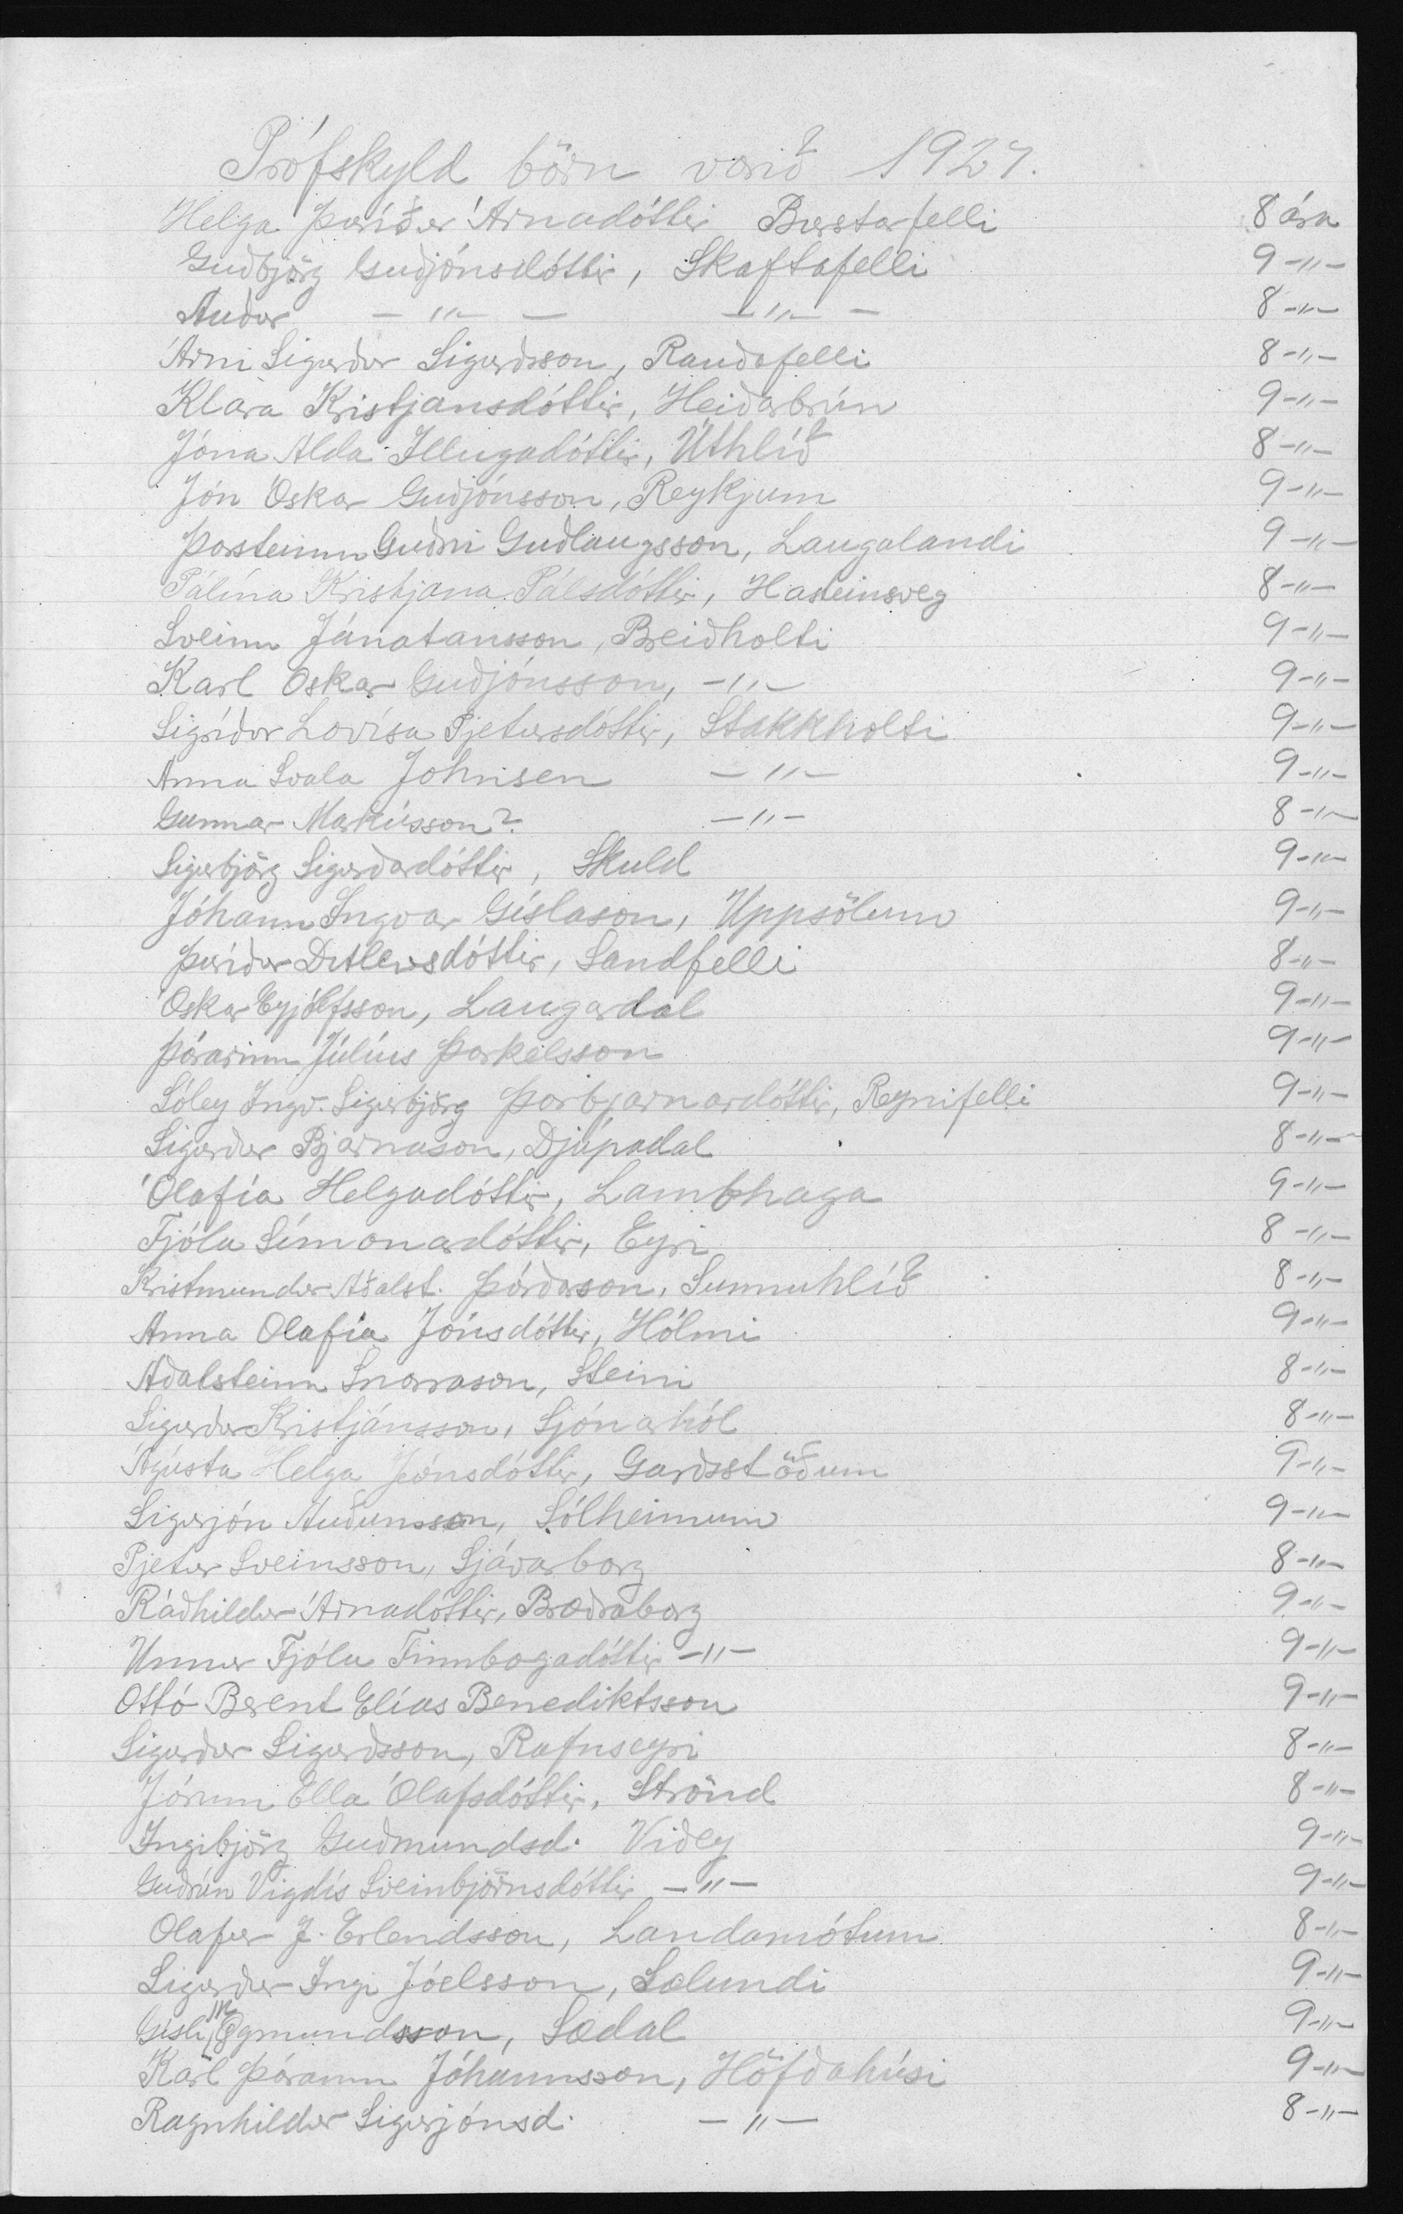 Prófskyld börn vorið 1927.
Helga Þuríður Árnadóttir Burstarfelli 8 ára
Guðbjörg Guðjónsdóttir, Skaftafelli 9 -"-
Auður -"- -"- 8 -"-
Árni Sigurður Sigurðsson, Rauðafelli 8 -"-
Klara Kristjansdóttir, Heiðarbrún 9 -"-
Jóna Alda Illugadóttir, Úthlíð 8 -"-
Jón Óskar Guðjónsson, Reykjum 9 -"-
Þorsteinn Guðni Guðlaugsson, Laugalandi 9 -"-
Pálína Kristjana Pálsdóttir, Hásteinsveg 8 -"-
Sveinn Jónatansson, Breiðholti 9 -"-
Karl Óskar Guðjónsson, -"- 9 -"-
Sigríður Lovísa Pjetursdóttir, Stakkholti 9 -"-
Anna Svala Johnsen -"- 9 -"-
Gunnar Markússon? -"- 8 -"-
Sigurbjörg Sigurðardóttir, Skuld 9 -"-
Jóhann Ingvar Gíslason, Uppsölum 9 -"-
Þuríður Ditlevsdóttir, Sandfelli 8 -"-
Óskar Eyjólfsson, Laugardal 9 -"-
Þórarinn Júlíus Þorkelsson 9 -"-
Sóley Ingv. Sigurbjörg Þorbjarnardóttir, Reynifelli 9 -"-
Sigurður Bjarnason, Djúpadal 8 -"-
Ólafía Helgadóttir, Lambhaga 9 -"-
Fjóla Símonardóttir, Eyri 8 -"-
Kristmundur Aðalst. Þórðarson, Sunnuhlíð 8 -"-
Anna Olafía Jónsdóttir, Hólmi 9 -"-
Aðalsteinn Snorrason, Steini 8 -"-
Sigurður Kristjánsson, Sjónarhól 8 -"-
Ágústa Helga Jónsdóttir, Garðsstöðum 9 -"-
Sigurjón Auðunsson, Sólheimum 9 -"-
Pjetur Sveinsson, Sjávarborg 8 -"-
Ráðhildur Árnadóttir, Bræðraborg 9 -"-
Unnur Fjóla Finnbogadóttir -"- 9 -"-
Ottó Berent Elías Benediktsson 9 -"-
Sigurður Sigurðsson, Rafnseyri 8 -"-
Jórunn Ella Ólafsdóttir, Strönd 8 -"-
Ingibjörg Guðmundsd. Viðey 9 -"-
Guðrún Vigdís Sveinbjörnsdóttir -"- 9 -"-
Olafur J. Erlendsson, Landamótum 8 -"-
Sigurður Ingi Jóelsson, Sælundi 9 -"-
Gísli Ögmundsson, Sædal 9 -"-
Karl Þórarinn Jóhannsson, Höfðahúsi 9 -"-
Ragnhildur Sigurjónsd. -"- 8 -"-